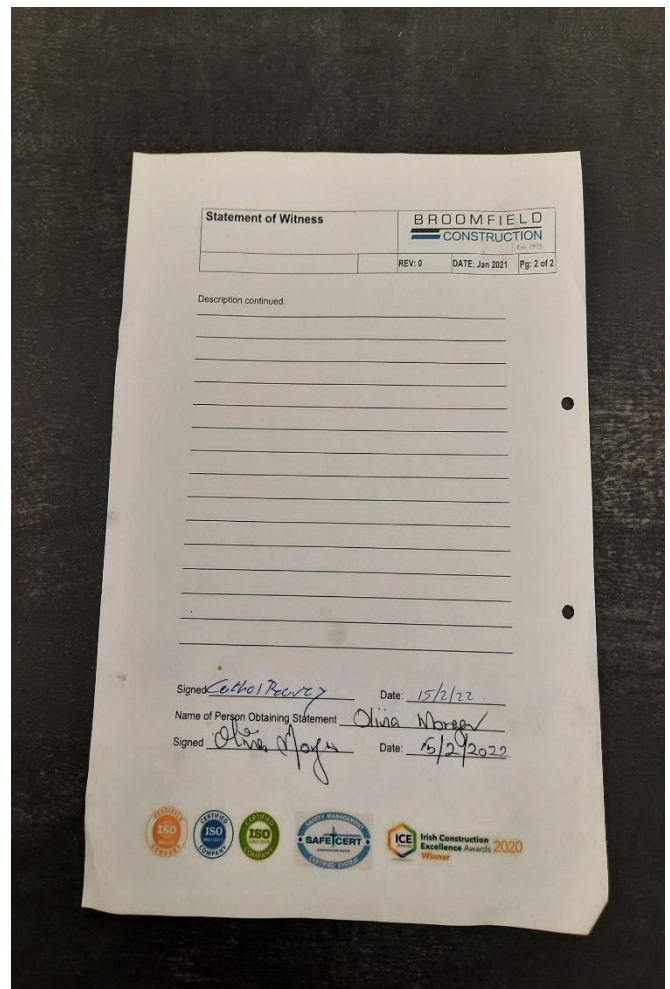 Statement of Witness
BROOMFIELD
CONSTRUCTION
Est. 1973
REV: 0 DATE: Jan 2021 Pg: 2 of 2
Description continued:
Signed Date: 15/2/22
Name of Person Obtaining Statement Olivia Morgan
Signed Olivia Date: 15/2/2022
CERTIFIED ISO COMPANY
CERTIFIED ISO COMPANY
CERTIFIED ISO COMPANY
SAFETY MANAGEMENT
SAFE CERT
CERTIFIED SYSTEM
ICE
Irish Construction
Excellence Awards 2020
Winner